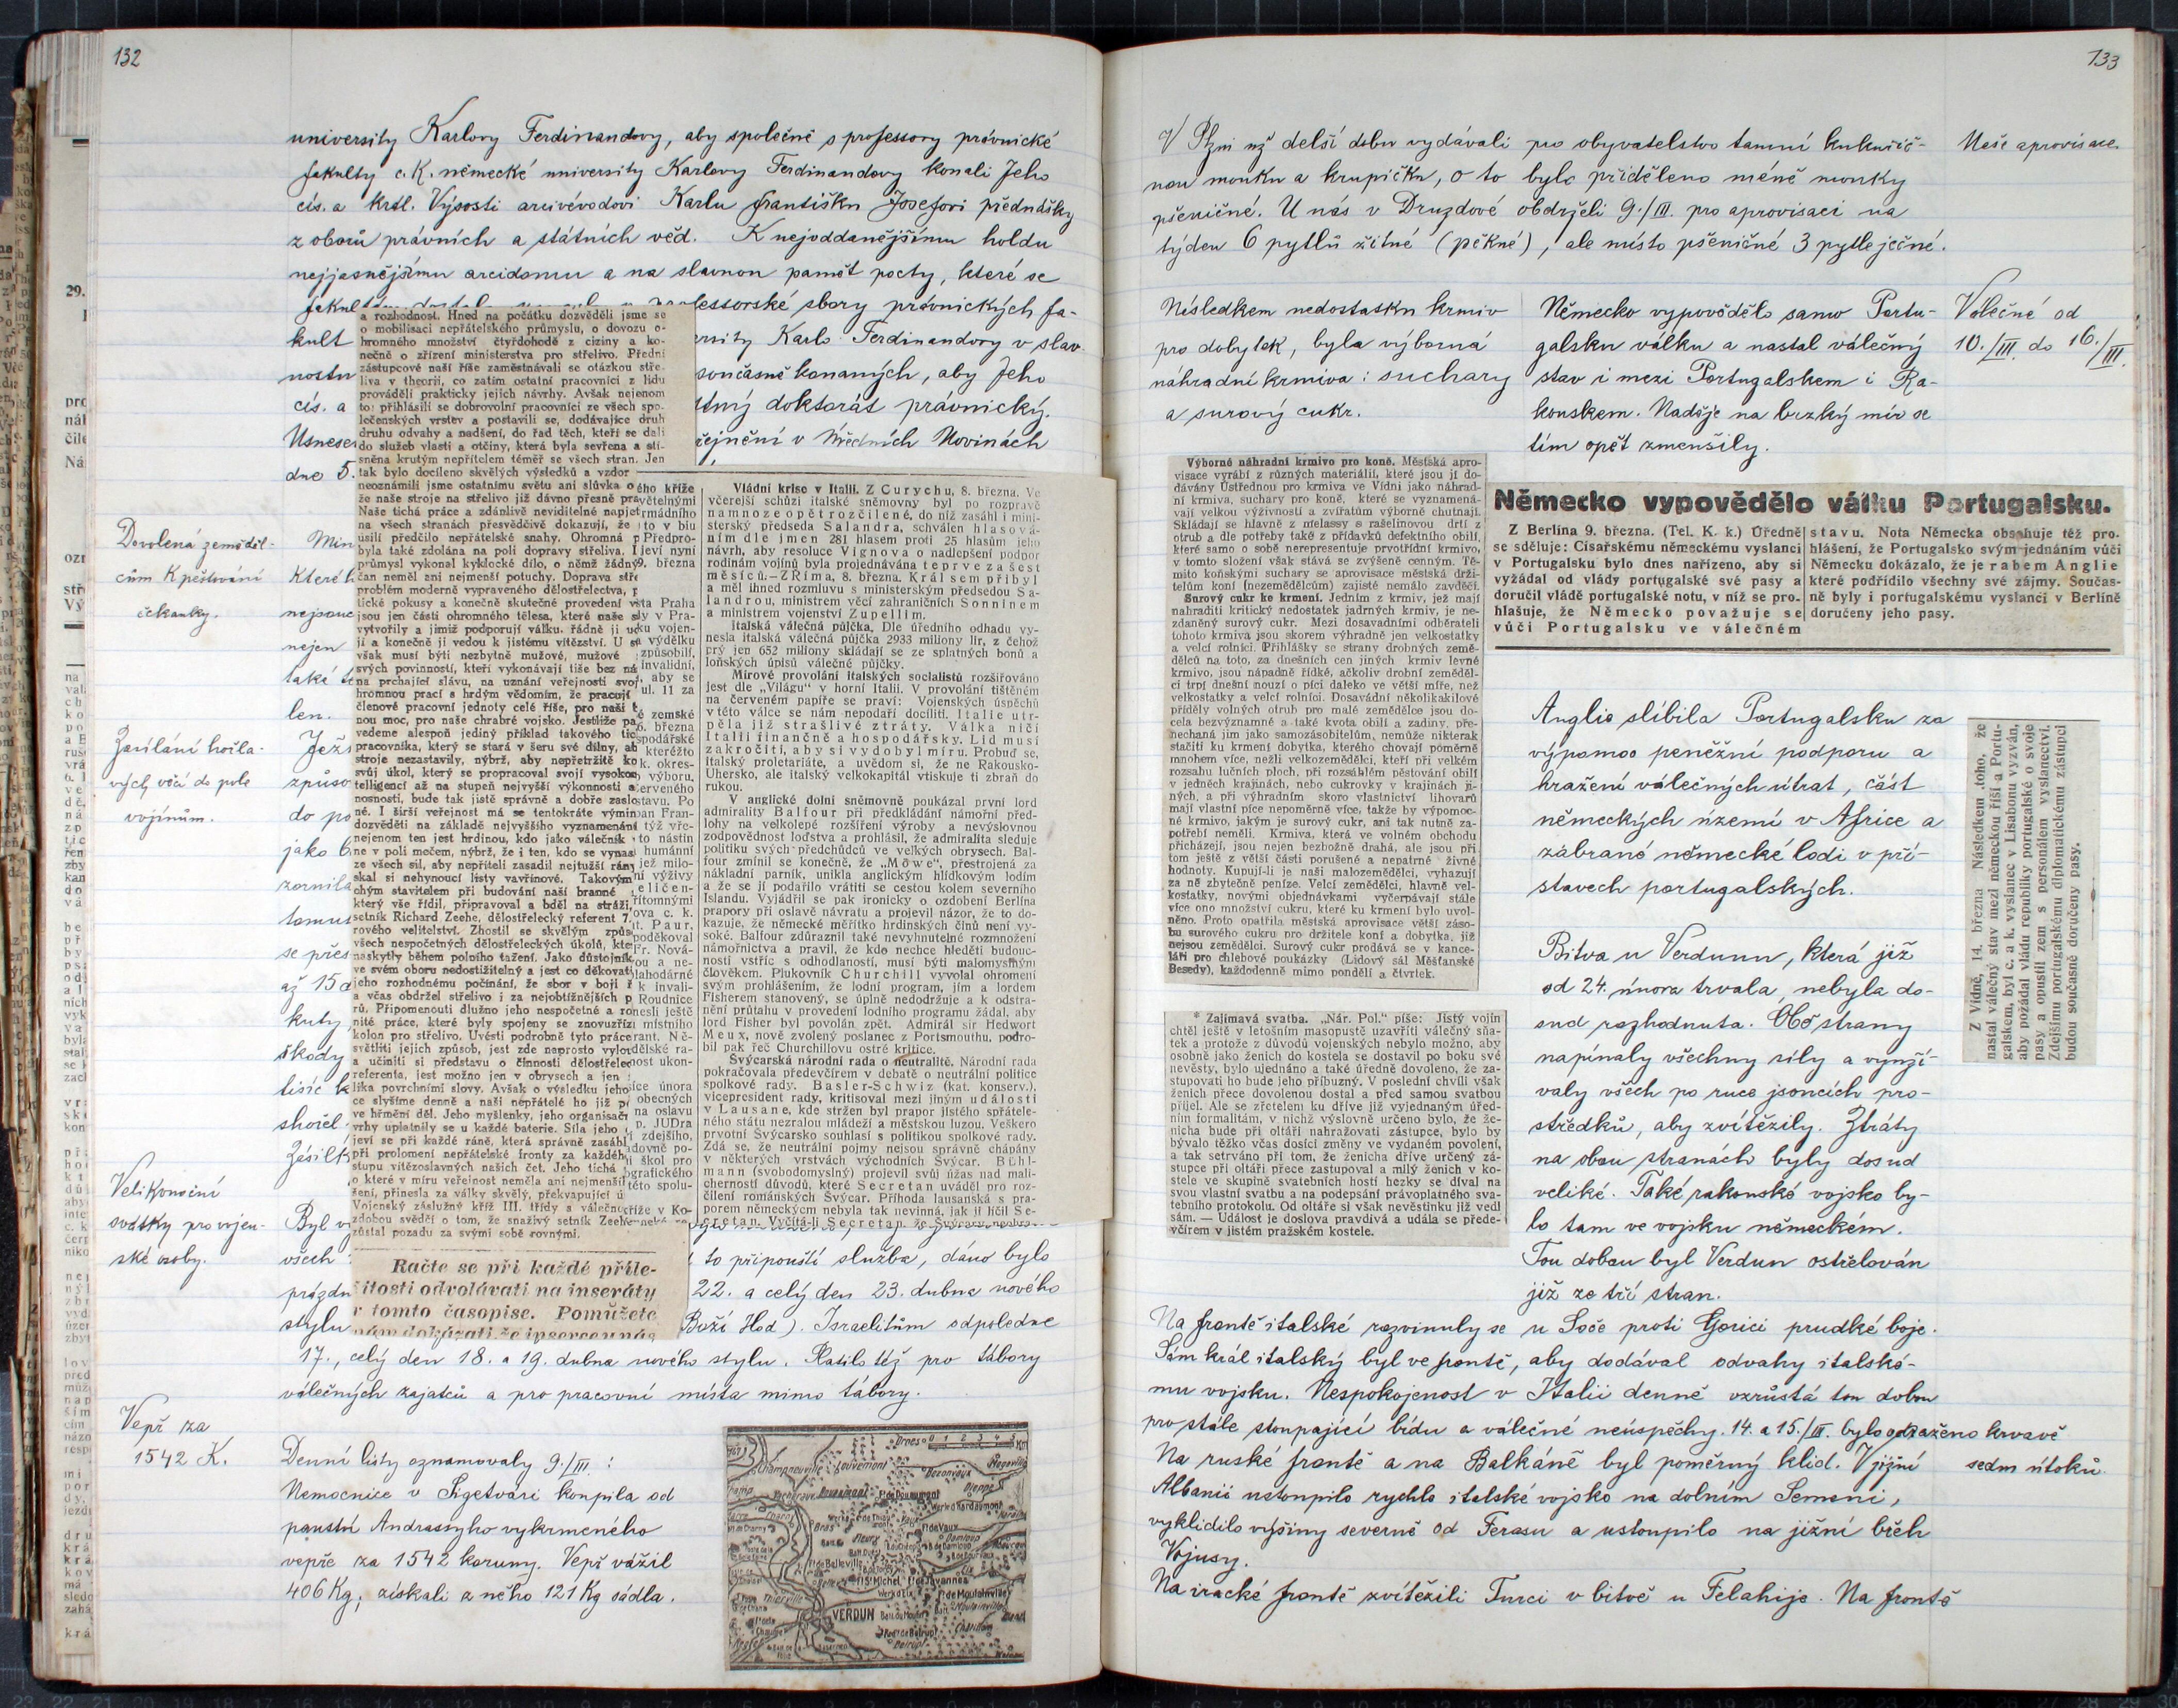 132
university Karlovy Ferdinandovy, aby společně s professory právnické
fakulty c. K. německé university Karlovy Ferdinandovy konali Jeho
cís. a král. Výsosti arcivévodovi Karlu Františku Josefovi přednášky
z oborů právních a státních věd. K nejoddanějšímu holdu
nejjasnějšímu arcidomu a na slavnou paměť pocty, které se
professorské sbory právnických fa-
kult
Karlo Ferdinandovy v slav.
nostn
současně konaných, aby Jeho
cís. a
doktorát právnický.
Usnesen
v Úředních Novinách
dne 5.
Dovolená zeměděl-
cům K pěstování
čekanky.
Zasílání hořla-
vých věcí do pole
vojínům.
Velikonoční
svátky pro vojen-
ské osoby.
Byl v
všech
to připouští služba, dáno bylo
prázdn
22. a celý den 23. dubna nového
stylu
Boží Hod). Israelitům odpoledne
17., celý den 18. a 19. dubna nového stylu. Platilo též pro tábory
válečných zajatců a pro pracovní místa mimo tábory.
Vepř za
1542 K.
Denní listy oznamovaly 9./III. :
Nemocnice v Sigetvári koupila od
panství Andrassyho vykrmeného
vepře za 1542 koruny. Vepř vážil
406 Kg; získali z něho 121 Kg sádla.
a rozhodnost. Hned na počátku dozvěděli jsme se
o mobilisaci nepřátelského průmyslu, o dovozu o-
hromného množství čtyřdohodě z ciziny a ko-
nečně o zřízení ministerstva pro střelivo. Přední
zástupcové naší říše zaměstnávali se otázkou stře-
liva v theorii, co zatím ostatní pracovníci z lidu
prováděli prakticky jejich návrhy. Avšak nejenom
to: přihlásili se dobrovolní pracovníci ze všech spo-
lečenských vrstev a postavili se, dodávajíce druh
druhu odvahy a nadšení, do řad těch, kteří se dali
do služeb vlasti a otčiny, která byla sevřena a stí-
sněna krutým nepřítelem téměř se všech stran. Jen
tak bylo docíleno skvělých výsledků a vzdor
neoznámili jsme ostatnímu světu ani slůvka o
že naše stroje na střelivo již dávno přesně pra
Naše tichá práce a zdánlivě neviditelné napjet
na všech stranách přesvědčivě dokazují, že
úsilí předčilo nepřátelské snahy. Ohromná p
byla také zdolána na poli dopravy střeliva. I
průmysl vykonal kyklocké dílo, o němž žádný
čan neměl ani nejmenší potuchy. Doprava stře
problém moderně vypraveného dělostřelectva, p
tické pokusy a konečně skutečné provedení v
jsou jen části ohromného tělesa, které naše s
vytvořily a jimiž podporují válku. řádně ji u
jí a konečně ji vedou k jistému vítězství. U
však musí býti nezbytně mužové, mužové
svých povinností, kteří vykonávají tiše bez ná
na prchající slávu, na uznání veřejnosti svoj
hromnou prací s hrdým vědomím, že pracují
členové pracovní jednoty celé říše, pro naši t
nou moc, pro naše chrabré vojsko. Jestliže pa
vedeme alespoň jediný příklad takového tic
pracovníka, který se stará v šeru své dílny, ab
stroje nezastavily, nýbrž, aby nepřetržitě ko
svůj úkol, který se propracoval svojí vysokou
telligencí až na stupeň nejvyšší výkonnosti a
nosnosti, bude tak jistě správně a dobře zaslo
né. I širší veřejnost má se tentokráte výmin
dozvěděti na základě nejvyššího vyznamenání
nejenom ten jest hrdinou, kdo jako válečník
ne v poli mečem, nýbrž, že i ten, kdo se vynas
ze všech sil, aby nepříteli zasadil nejtužší rány
skal si nehynoucí listy vavřínové. Takovým
chým stavitelem při budování naší branné
který vše řídil, připravoval a bděl na stráži,
setník Richard Zeehe, dělostřelecký referent 7.
rového velitelství. Zhostil se skvělým způs
všech nespočetných dělostřeleckých úkolů, kte
naskytly během polního tažení. Jako důstojník
ve svém oboru nedostižitelný a jest co děkovat
jeho rozhodnému počínání, že sbor v boji ř
a včas obdržel střelivo i za nejobtížnějších p
rů. Připomenouti dlužno jeho nespočetné a ro
nité práce, které byly spojeny se znovuzříz
kolon pro střelivo. Uvésti podrobně tyto práce
světliti jejich způsob, jest zde naprosto vylou
a učiniti si představu o činnosti dělostřelec
referenta, jest možno jen v obrysech a jen
lika povrchními slovy. Avšak o výsledku jeho
ce slyšíme denně a naši nepřátelé ho již p
ve hřmění děl. Jeho myšlenky, jeho organisač
vrhy uplatnily se u každé baterie. Síla jeho
jeví se při každé ráně, která správně zasábl
při prolomení nepřátelské fronty za každéh
stupu vítězoslavných našich čet. Jeho tichá
o které v míru veřejnost neměla ani nejmenší
žení, přinesla za války skvělý, překvapující ú
Vojenský záslužný kříž III. třídy s válečno
zdobou svědčí o tom, že snaživý setník Zeeh
zůstal pozadu za svými sobě rovnými.
Račte se při každé příle-
žitosti odvolávati na inseráty
v tomto časopise. Pomůžete
nám dokázati, že insercenás
Vládní krise v Italii. Z Curychu, 8. března. Ve
včerejší schůzi italské sněmovny byl po rozpravě
namnoze opět rozčilené, do níž zasáhl i mini-
sterský předseda Salandra, schválen hlasová-
ním dle jmen 281 hlasem proti 25 hlasům jeho
návrh, aby resoluce Vignova o nadlepšení podpor
rodinám vojínů byla projednávána teprve za šest
měsíců. — Z Říma, 8. března. Král sem přibyl
a měl ihned rozmluvu s ministerským předsedou Sa-
landrou, ministrem věcí zahraničních Sonninem
a ministrem vojenství Zupellim.
Italská válečná půjčka. Dle úředního odhadu vy-
nesla italská válečná půjčka 2933 miliony lir, z čehož
prý jen 652 miliony skládají se ze splatných bonů a
loňských úpisů válečné půjčky.
Mírové provolání italských socialistů rozšiřováno
jest dle „Világu“ v horní Italii. V provolání tištěném
na červeném papíře se praví: Vojenských úspěchů
v této válce se nám nepodaří docíliti. Italie utr-
pěla již strašlivé ztráty. Válka ničí
Italii finančně a hospodářsky. Lid musí
zakročiti, aby si vydobyl míru. Probuď se,
italský proletariáte, a uvědom si, že ne Rakousko-
Uhersko, ale italský velkokapitál vtiskuje ti zbraň do
rukou.
V anglické dolní sněmovně poukázal první lord
admirality Balfour při předkládání námořní před-
lohy na velkolepé rozšíření výroby a nevýslovnou
zodpovědnost loďstva a prohlásil, že admiralita sleduje
politiku svých předchůdců ve velkých obrysech. Bal-
four zmínil se konečně, že „Möwe“, přestrojená za
nákladní parník, unikla anglickým hlídkovým lodím
a že se jí podařilo vrátiti se cestou kolem severního
Islandu. Vyjádřil se pak ironicky o ozdobení Berlína
prapory při oslavě návratu a projevil názor, že to do-
kazuje, že německé měřítko hrdinských činů není vy-
soké. Balfour zdůraznil také nevyhnutelné rozmnožení
námořnictva a pravil, že kdo nechce hleděti budouc-
nosti vstříc s odhodlaností, musí býti malomyslným
člověkem. Plukovník Churchill vyvolal ohromení
svým prohlášením, že lodní program, jím a lordem
Fisherem stanovený, se úplně nedodržuje a k odstra-
nění průtahu v provedení lodního programu žádal, aby
lord Fisher byl povolán zpět. Admirál sir Hedwort
Meux, nově zvolený poslanec z Portsmouthu, podro-
bil pak řeč Churchillovu ostré kritice.
Švýcarská národní rada o neutralitě. Národní rada
pokračovala předevčírem v debatě o neutrální politice
spolkové rady. Basler-Schwiz (kat. konserv.),
vicepresident rady, kritisoval mezi jiným události
v Lausane, kde stržen byl prapor jistého spřátele-
ného státu nezralou mládeží a městskou luzou. Veškero
prvotní Švýcarsko souhlasí s politikou spolkové rady.
Zdá se, že neutrální pojmy nejsou správně chápány
v některých vrstvách východních Švýcar. Bühl-
mann (svobodomyslný) projevil svůj úžas nad mali-
cherností důvodů, které Secretan uváděl pro roz-
čílení románských Švýcar. Příhoda lausanská s pra-
porem německým nebyla tak nevinná, jak ji líčil Se-
cretan. Vyčítá-li Secretan, že
VERDUN
133
V Plzni už delší dobu vydávali pro obyvatelstvo tamní kukuřič-
nou mouku a krupičku, o to bylo přiděleno méně mouky
pšeničné. U nás v Druzdové obdrželi 9./III. pro aprovisaci na
týden 6 pytlů žitné (pěkné), ale místo pšeničné 3 pytle ječné.
Naše aprovisace.
Následkem nedostatku krmiv
pro dobytek, byla výborná
náhradní krmiva: suchary
a surový cukr.
Německo vypovědělo samo Portu-
galsku válku a nastal válečný
stav i mezi Portugalskem i Ra-
kouskem. Naděje na brzký mír se
tím opět zmenšily.
Válečné od
10./III. do 16./III.
Výborné náhradní krmivo pro koně. Městská apro-
visace vyrábí z různých materiálií, které jsou jí do-
dávány Ústřednou pro krmiva ve Vídni jako náhrad-
ní krmiva, suchary pro koně, které se vyznamená-
vají velkou výživností a zvířatům výborně chutnají.
Skládají se hlavně z melassy s rašelinovou drtí z
otrub a dle potřeby také z přídavků defektního obilí,
které samo o sobě nerepresentuje prvotřídní krmivo,
v tomto složení však stává se zvýšeně cenným. Tě-
mito koňskými suchary se aprovisace městská drži-
telům koní (nezemědělcům) zajisté mnoho zavděčí.
Surový cukr ke krmení. Jedním z krmiv, jež mají
nahraditi kritický nedostatek jadrných krmiv, je ne-
zdaněný surový cukr. Mezi dosavadními odběrateli
tohoto krmiva jsou skorem výhradně jen velkostatky
a velcí rolníci. Přihlášky se strany drobných země-
dělců na toto, za dnešních cen jiných krmiv levné
krmivo, jsou nápadně řídké, ačkoliv drobní zeměděl-
ci trpí dnešní nouzí o píci daleko ve větší míře, než
velkostatky a velcí rolníci. Dosavádní několikakilové
příděly volných otrub pro malé zemědělce jsou do-
cela bezvýznamné a také kvota obilí a zadiny, pře-
nechaná jim jako samozásobitelům, nemůže nikterak
stačiti ku krmení dobytka, kterého chovají poměrně
mnohem více, nežli velkozemědělci, kteří při velkém
rozsahu lučních ploch, při rozsáhlém pěstování obilí
v jedněch krajinách, nebo cukrovky v krajinách ji-
ných, a při výhradním skoro vlastnictví lihovarů
mají vlastní píce nepoměrně více, takže by výpomoc-
né krmivo, jakým je surový cukr, ani tak nutně za-
potřebí neměli. Krmiva, která ve volném obchodu
přicházejí, jsou nejen bezbožně drahá, ale jsou při
tom ještě z větší části porušené a nepatrné živné
hodnoty. Kupují-li je naši malozemědělci, vyhazují
za ně zbytečně peníze. Velcí zemědělci, hlavně vel-
kostatky, novými objednávkami vyčerpávají stále
více ono množství cukru, které ku krmení bylo uvol-
něno. Proto opatřila městská aprovisace větší záso-
bu surového cukru pro držitele koní a dobytka, již
nejsou zemědělci. Surový cukr prodává se v kance-
láři pro chlebové poukázky (Lidový sál Měšťanské
Besedy), každodenně mimo pondělí a čtvrtek.
* Zajímavá svatba. „Nár. Pol.“ píše: Jistý vojín
chtěl ještě v letošním masopustě uzavříti válečný sňa-
tek a protože z důvodů vojenských nebylo možno, aby
osobně jako ženich do kostela se dostavil po boku své
nevěsty, bylo ujednáno a také úředně dovoleno, že za-
stupovati ho bude jeho příbuzný. V poslední chvíli však
ženich přece dovolenou dostal a před samou svatbou
přijel. Ale se zřetelem ku dříve již vyjednaným úřed-
ním formalitám, v nichž výslovně určeno bylo, že že-
nicha bude při oltáři nahražovati zástupce, bylo by
bývalo těžko včas dosíci změny ve vydaném povolení,
a tak setrváno při tom, že ženicha dříve určený zá-
stupce při oltáři přece zastupoval a milý ženich v ko-
stele ve skupině svatebních hostí hezky se díval na
svou vlastní svatbu a na podepsání právoplatného sva-
tebního protokolu. Od oltáře si však nevěstinku již vedl
sám. — Událost je doslova pravdivá a udála se přede-
včírem v jistém pražském kostele.
Německo vypovědělo válku Portugalsku.
Z Berlína 9. března. (Tel. K. k.) Úředně
se sděluje: Císařskému německému vyslanci
v Portugalsku bylo dnes nařízeno, aby si
vyžádal od vlády portugalské své pasy a
doručil vládě portugalské notu, v níž se pro-
hlašuje, že Německo považuje se
vůči Portugalsku ve válečném
stavu. Nota Německa obsahuje též pro-
hlášení, že Portugalsko svým jednáním vůči
Německu dokázalo, že je rabem Anglie
které podřídilo všechny své zájmy. Součas-
ně byly i portugalskému vyslanci v Berlíně
doručeny jeho pasy.
Anglie slíbila Portugalsku za
výpomoc peněžní podporu a
hražení válečných útrat, část
německých území v Africe a
zabrané německé lodi v pří-
stavech portugalských.
Z Vídně, 14. března Následkem toho, že
nastal válečný stav mezi německou říší a Portu-
galskem, byl c. a k. vyslanec v Lisabonu vyzván,
aby požádal vládu republiky portugalské o svoje
pasy a opustil zem s personálem vyslanectví.
Zdejšímu portugalskému diplomatickému zástupci
budou současně doručeny pasy.
Bitva u Verdunu, která již
od 24. února trvala, nebyla do-
sud rozhodnuta. Obě strany
napínaly všechny síly a využí-
valy všech po ruce jsoucích pro-
středků, aby zvítězily. Ztráty
na obou stranách byly dosud
veliké. Také rakouské vojsko by-
lo tam ve vojsku německém.
Tou dobou byl Verdun ostřelován
již ze tří stran.
Na frontě italské rozvinuly se u Soče proti Gorici prudké boje.
Sám král italský byl ve frontě, aby dodával odvahy italské-
mu vojsku. Nespokojenost v Italii denně vzrůstá tou dobou
pro stále stoupající bídu a válečné neúspěchy. 14. a 15./III. bylo odraženo krvavě
sedm útoků.
Na ruské frontě a na Balkáně byl poměrný klid. V jižní
Albanii ustoupilo rychle italské vojsko na dolním Semeni,
vyklidilo výšiny severně od Ferasu a ustoupilo na jižní břeh
Vojusy.
Na iracké frontě zvítězili Turci v bitvě u Felahije. Na frontě